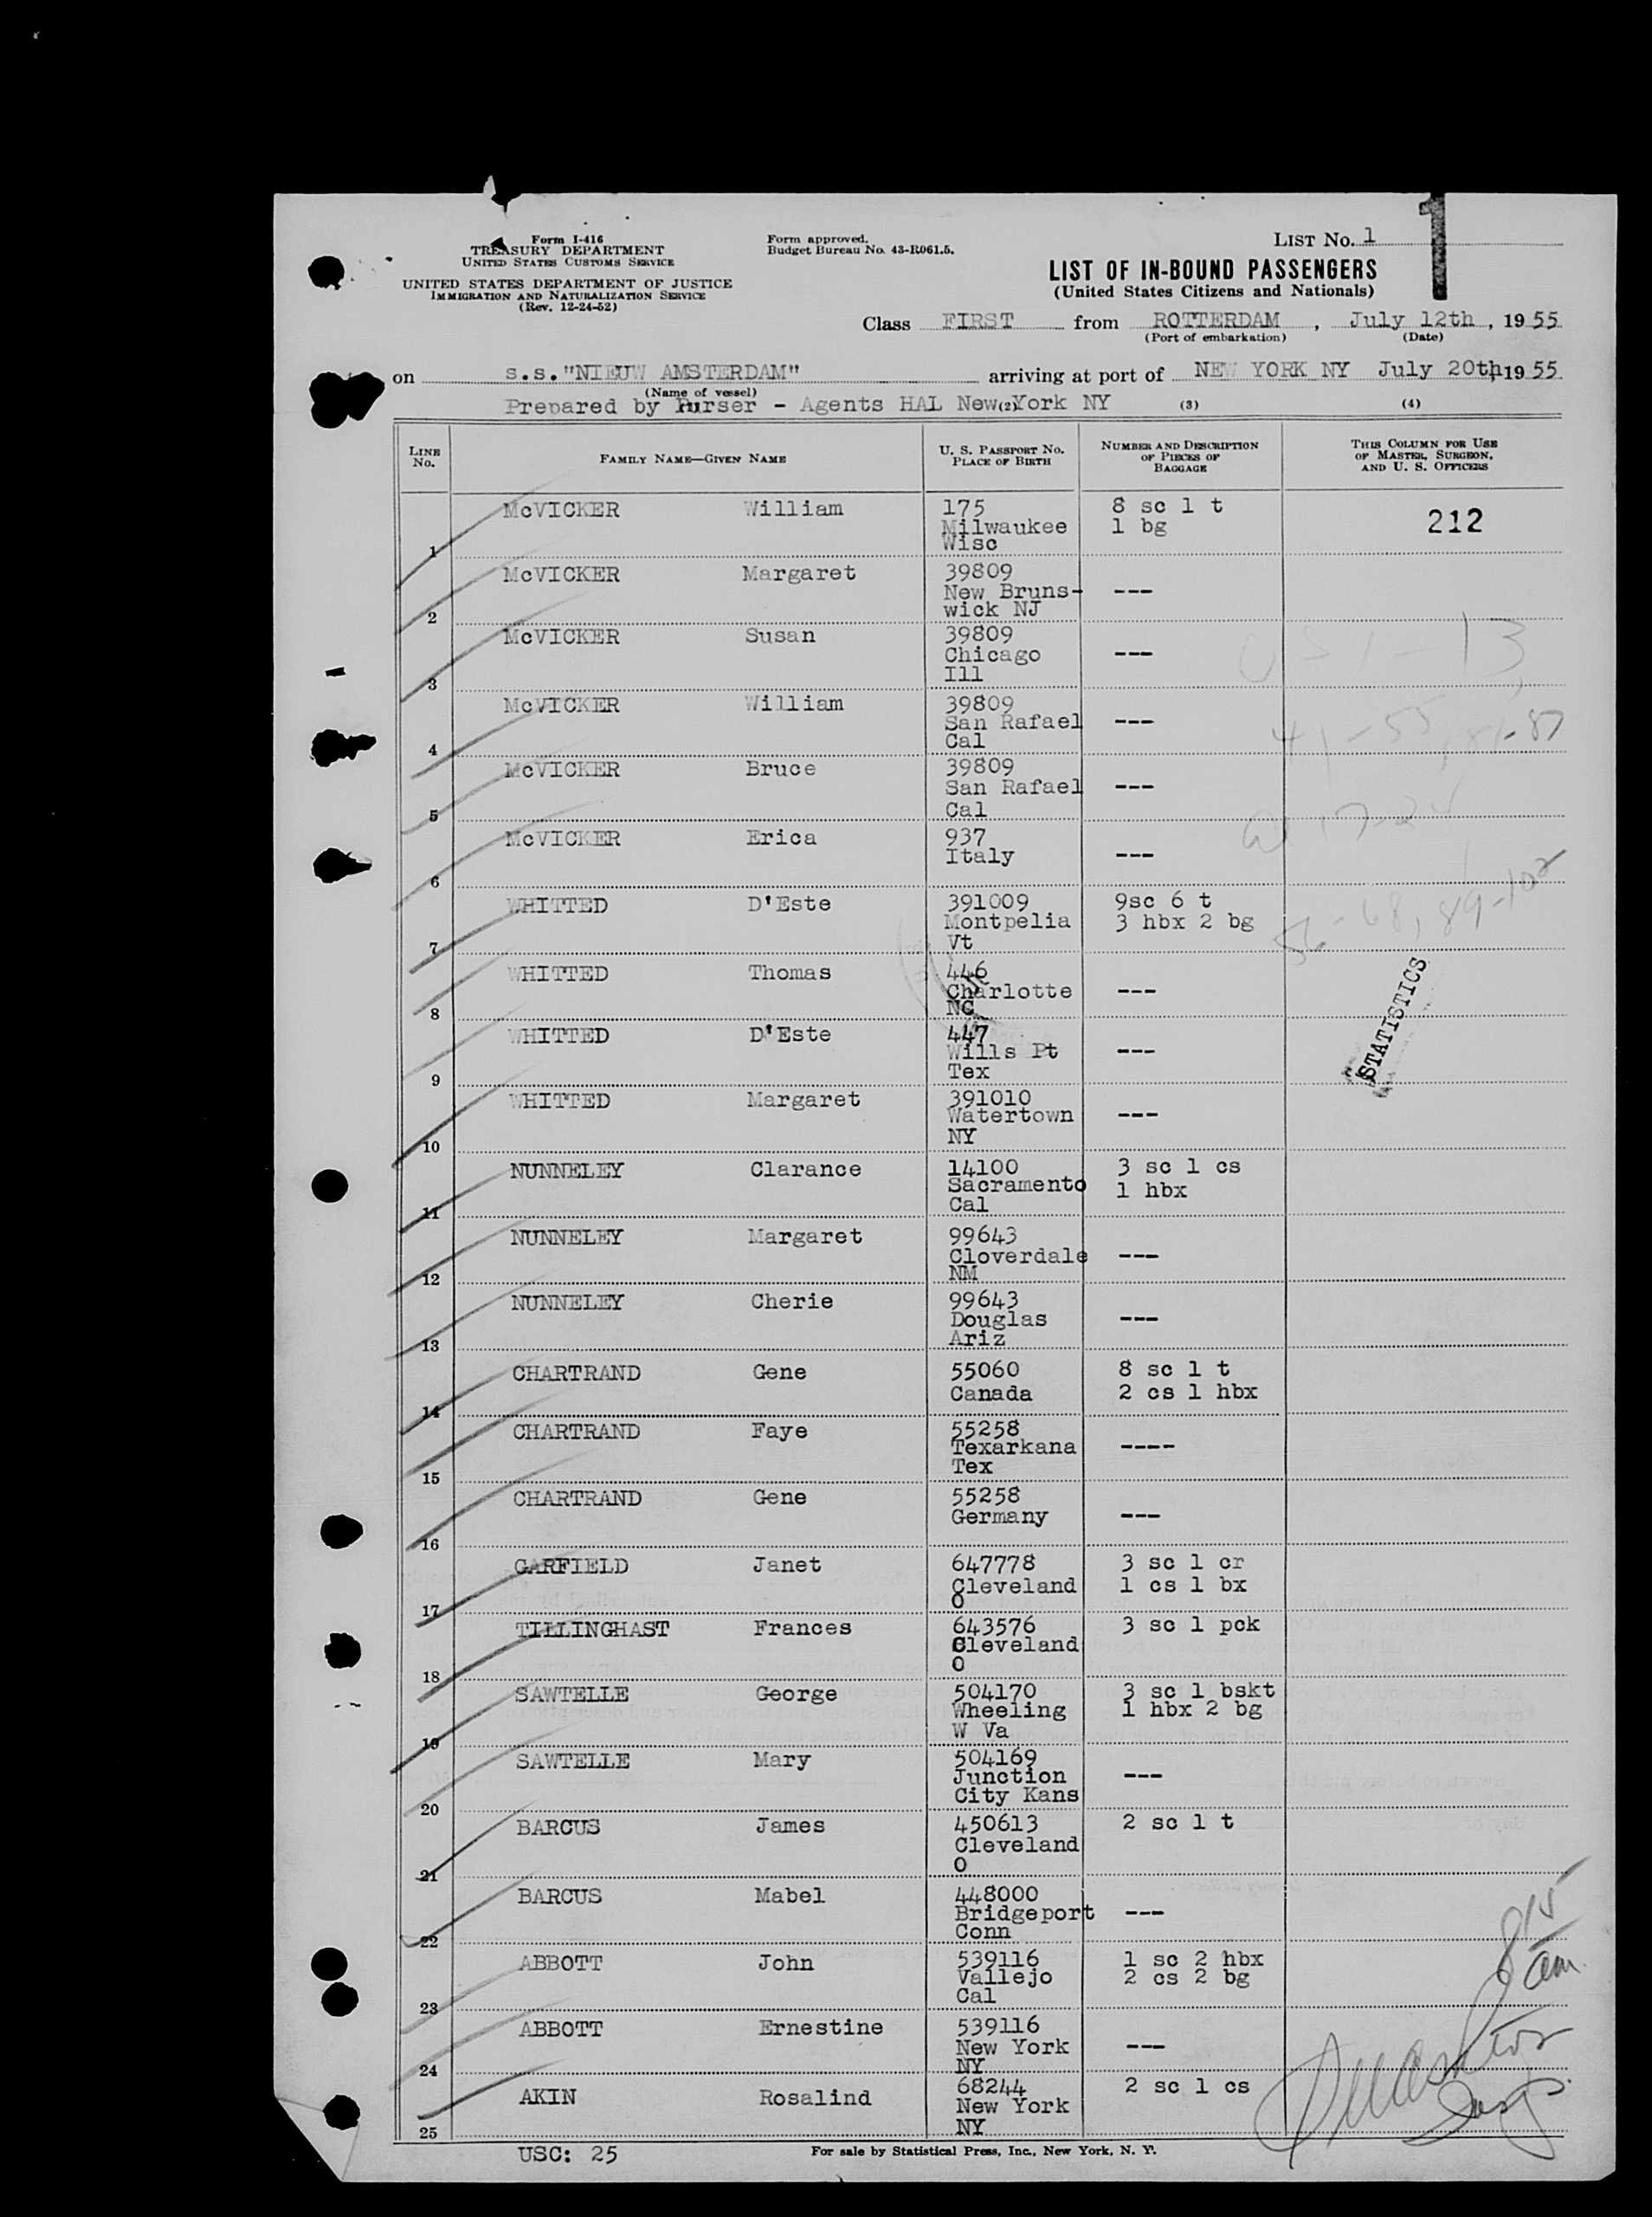 Form I-416
TREASURY DEPARTMENT
UNITED STATES CUSTOMS SERVICE
UNITED STATES DEPARTMENT OF JUSTICE
IMMIGRATION AND NATURALIZATION SERVICE
(Rev. 12-24-52)
Form approved.
Budget Bureau No. 43-R061.5.
LIST NO. 1
1
LIST OF IN-BOUND PASSENGERS
(United States Citizens and Nationals)
Class FIRST from ROTTERDAM, July 12th, 1955
(Port of embarkation) (Date)
on s.s."NIEUW AMSTERDAM" arriving at port of NEW YORK NY July 20th, 1955
(Name of vessel)
Prepared by Purser - Agents HAL New York NY (2) (3) (4)
LINE No. FAMILY NAME—GIVEN NAME U. S. PASSPORT NO. PLACE OF BIRTH NUMBER AND DESCRIPTION OF PIECES OF BAGGAGE THIS COLUMN FOR USE OF MASTER, SURGEON, AND U. S. OFFICERS
1 McVICKER William 175 Milwaukee Wisc 8 sc 1 t 1 bg 212
2 McVICKER Margaret 39809 New Bruns-wick NJ ---
3 McVICKER Susan 39809 Chicago Ill ---
4 McVICKER William 39809 San Rafael Cal ---
5 McVICKER Bruce 39809 San Rafael Cal ---
6 McVICKER Erica 937 Italy ---
7 WHITTED D'Este 391009 Montpelia Vt 9sc 6 t 3 hbx 2 bg
8 WHITTED Thomas 446 Charlotte NC ---
9 WHITTED D'Este 447 Wills Pt Tex ---
STATISTICS
10 WHITTED Margaret 391010 Watertown NY ---
11 NUNNELEY Clarance 14100 Sacramento Cal 3 sc 1 cs 1 hbx
12 NUNNELEY Margaret 99643 Cloverdale NM ---
13 NUNNELEY Cherie 99643 Douglas Ariz ---
14 CHARTRAND Gene 55060 Canada 8 sc 1 t 2 cs 1 hbx
15 CHARTRAND Faye 55258 Texarkana Tex ----
16 CHARTRAND Gene 55258 Germany ---
17 GARFIELD Janet 647778 Cleveland O 3 sc 1 cr 1 cs 1 bx
18 TILLINGHAST Frances 643576 Cleveland O 3 sc 1 pck
19 SAWTELLE George 504170 Wheeling W Va 3 sc 1 bskt 1 hbx 2 bg
20 SAWTELLE Mary 504169 Junction City Kans ---
21 BARCUS James 450613 Cleveland O 2 sc 1 t
22 BARCUS Mabel 448000 Bridgeport Conn ---
23 ABBOTT John 539116 Vallejo Cal 1 sc 2 hbx 2 cs 2 bg
24 ABBOTT Ernestine 539116 New York NY ---
25 AKIN Rosalind 68244 New York NY 2 sc 1 cs
USC: 25
For sale by Statistical Press, Inc., New York, N. Y.